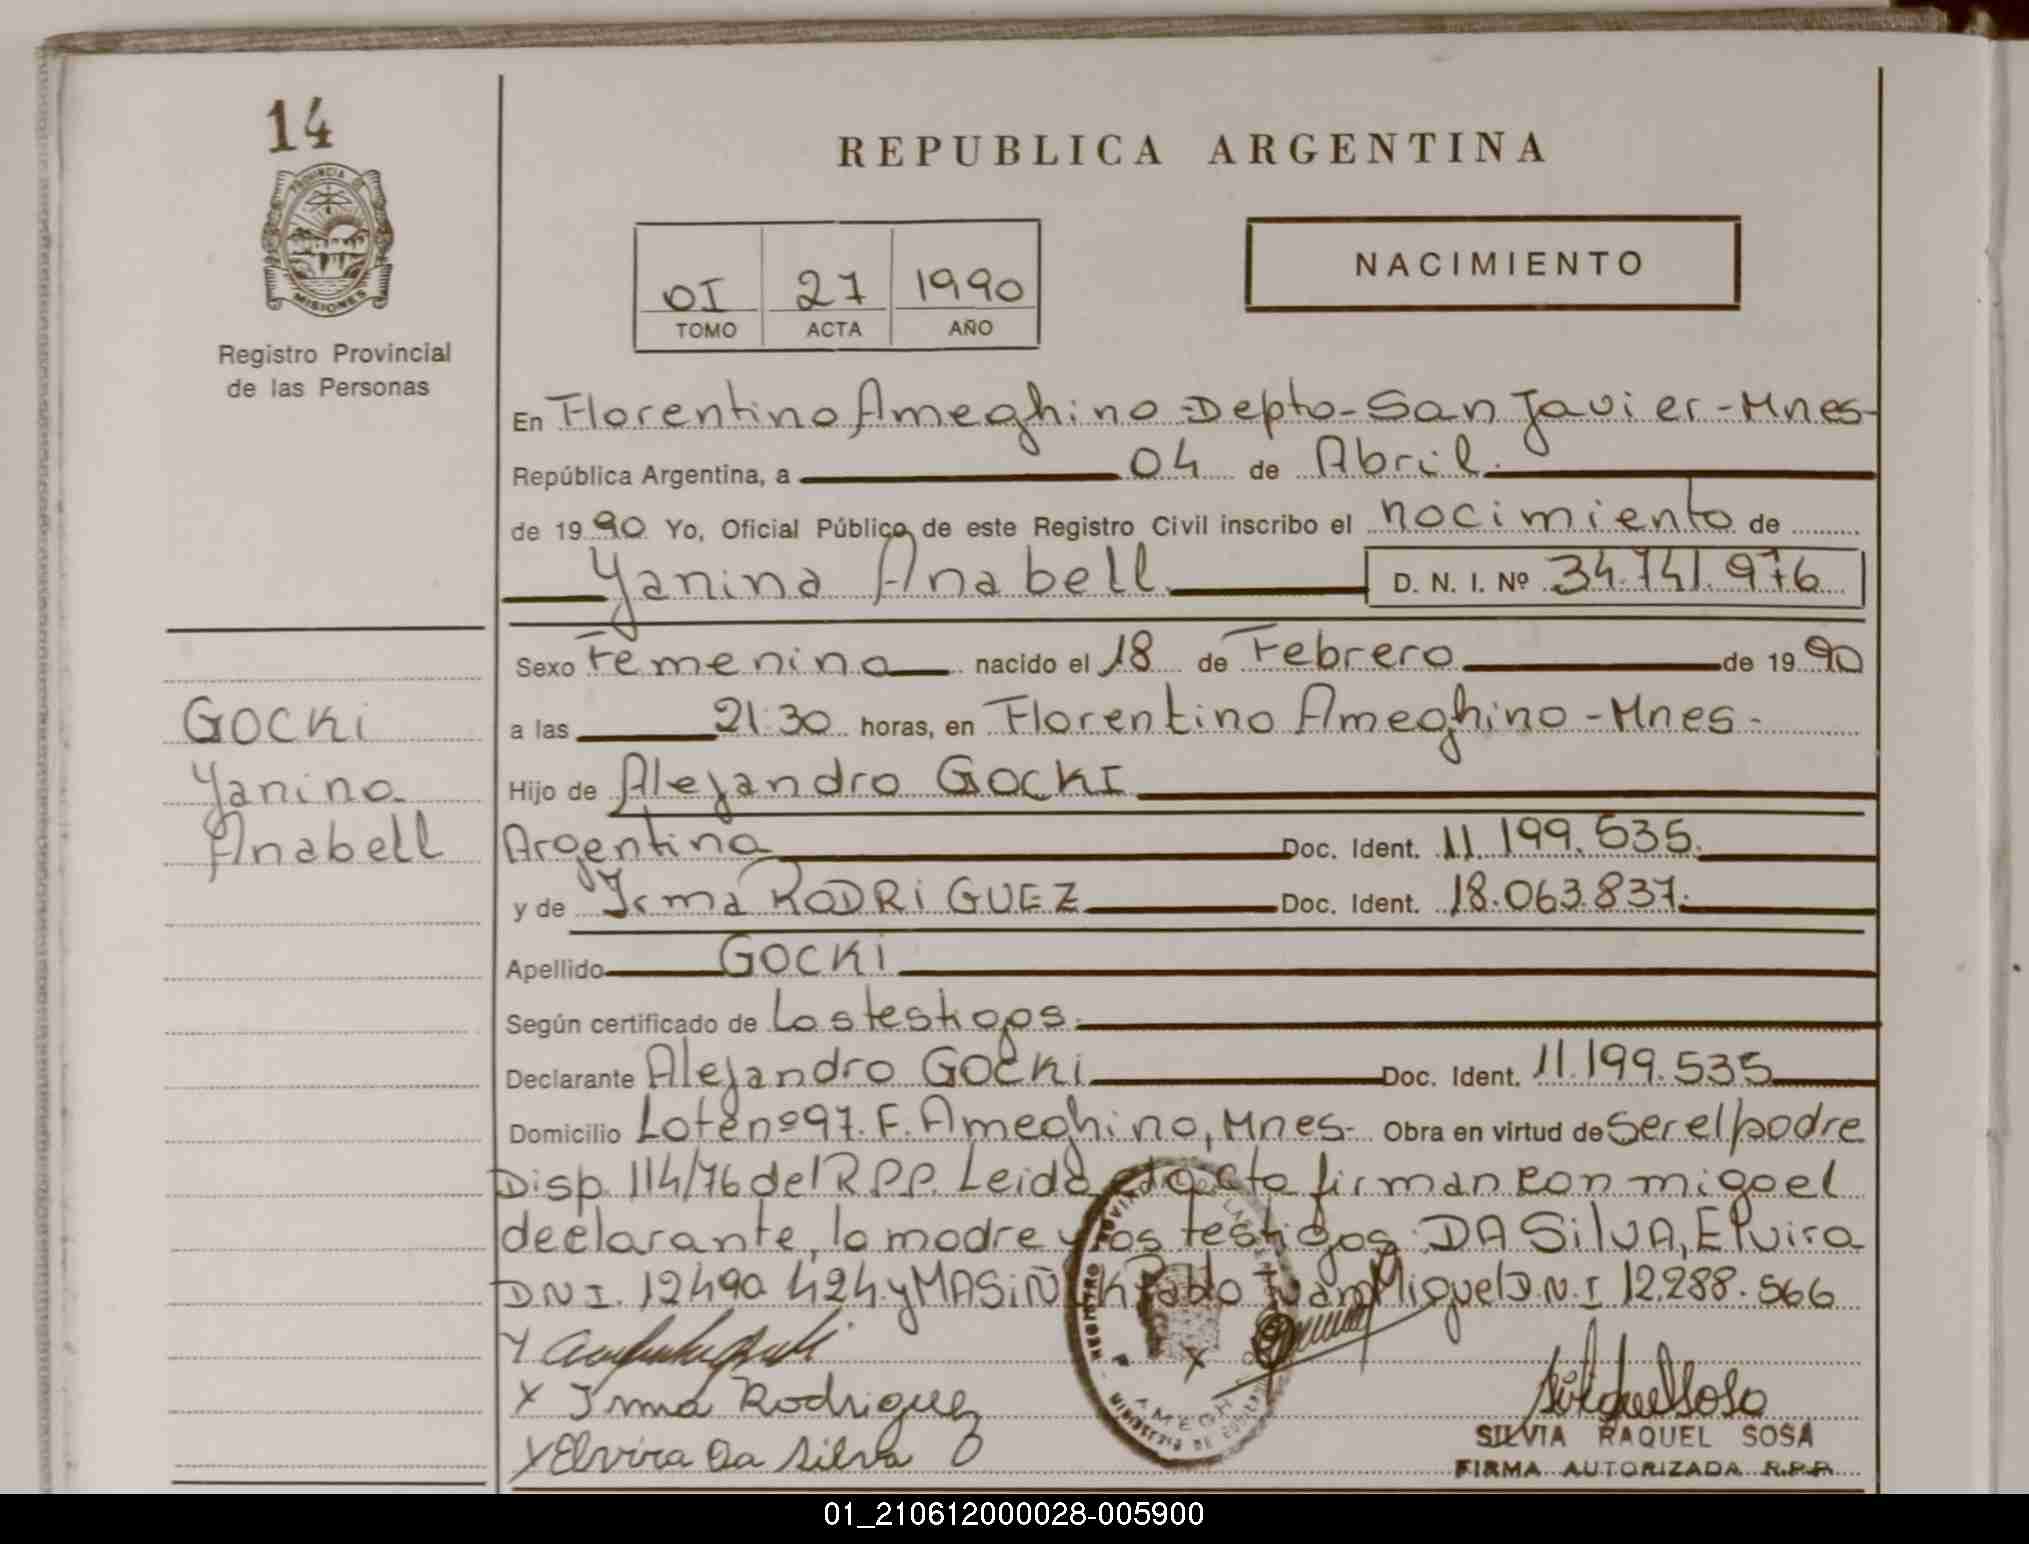 14
PROVINCIA DE
MISIONES
Registro Provincial
de las Personas
GOCKi
Yanina
Anabell
REPUBLICA ARGENTINA
OI 27 1990
TOMO ACTA AÑO
NACIMIENTO
En Florentino Ameghino-Depto-San Javier-Mnes-
República Argentina, a 04 de Abril.
de 1990 Yo, Oficial Público de este Registro Civil inscribo el nacimiento de
Yanina Anabell D. N. I. Nº 34.741.976
Sexo Femenino nacido el 18 de Febrero de 1990
a las 21:30 horas, en Florentino Ameghino-Mnes-
Hijo de Alejandro GOCKI
Argentina Doc. Ident. 11.199.535.
y de Irma RODRiGUEZ Doc. Ident. 18.063.837.
Apellido GOCKi
Según certificado de Los testigos.
Declarante Alejandro GOCKi Doc. Ident. 11.199.535
Domicilio Lote nº 97. F. Ameghino, Mnes- Obra en virtud de ser el padre
Disp. 114/76 del R.P.P. Leida acta firman con migo el
declarante, la madre y los testigos: DA SilVA, Elvira
D.N.I. 12.490.424 y Pablo Juan Miguel D.N.I 12.288.566
X Irma Rodriguez
X Elvira Da Silva
SILVIA RAQUEL SOSA
FIRMA AUTORIZADA R.P.P.
01_210612000028-005900